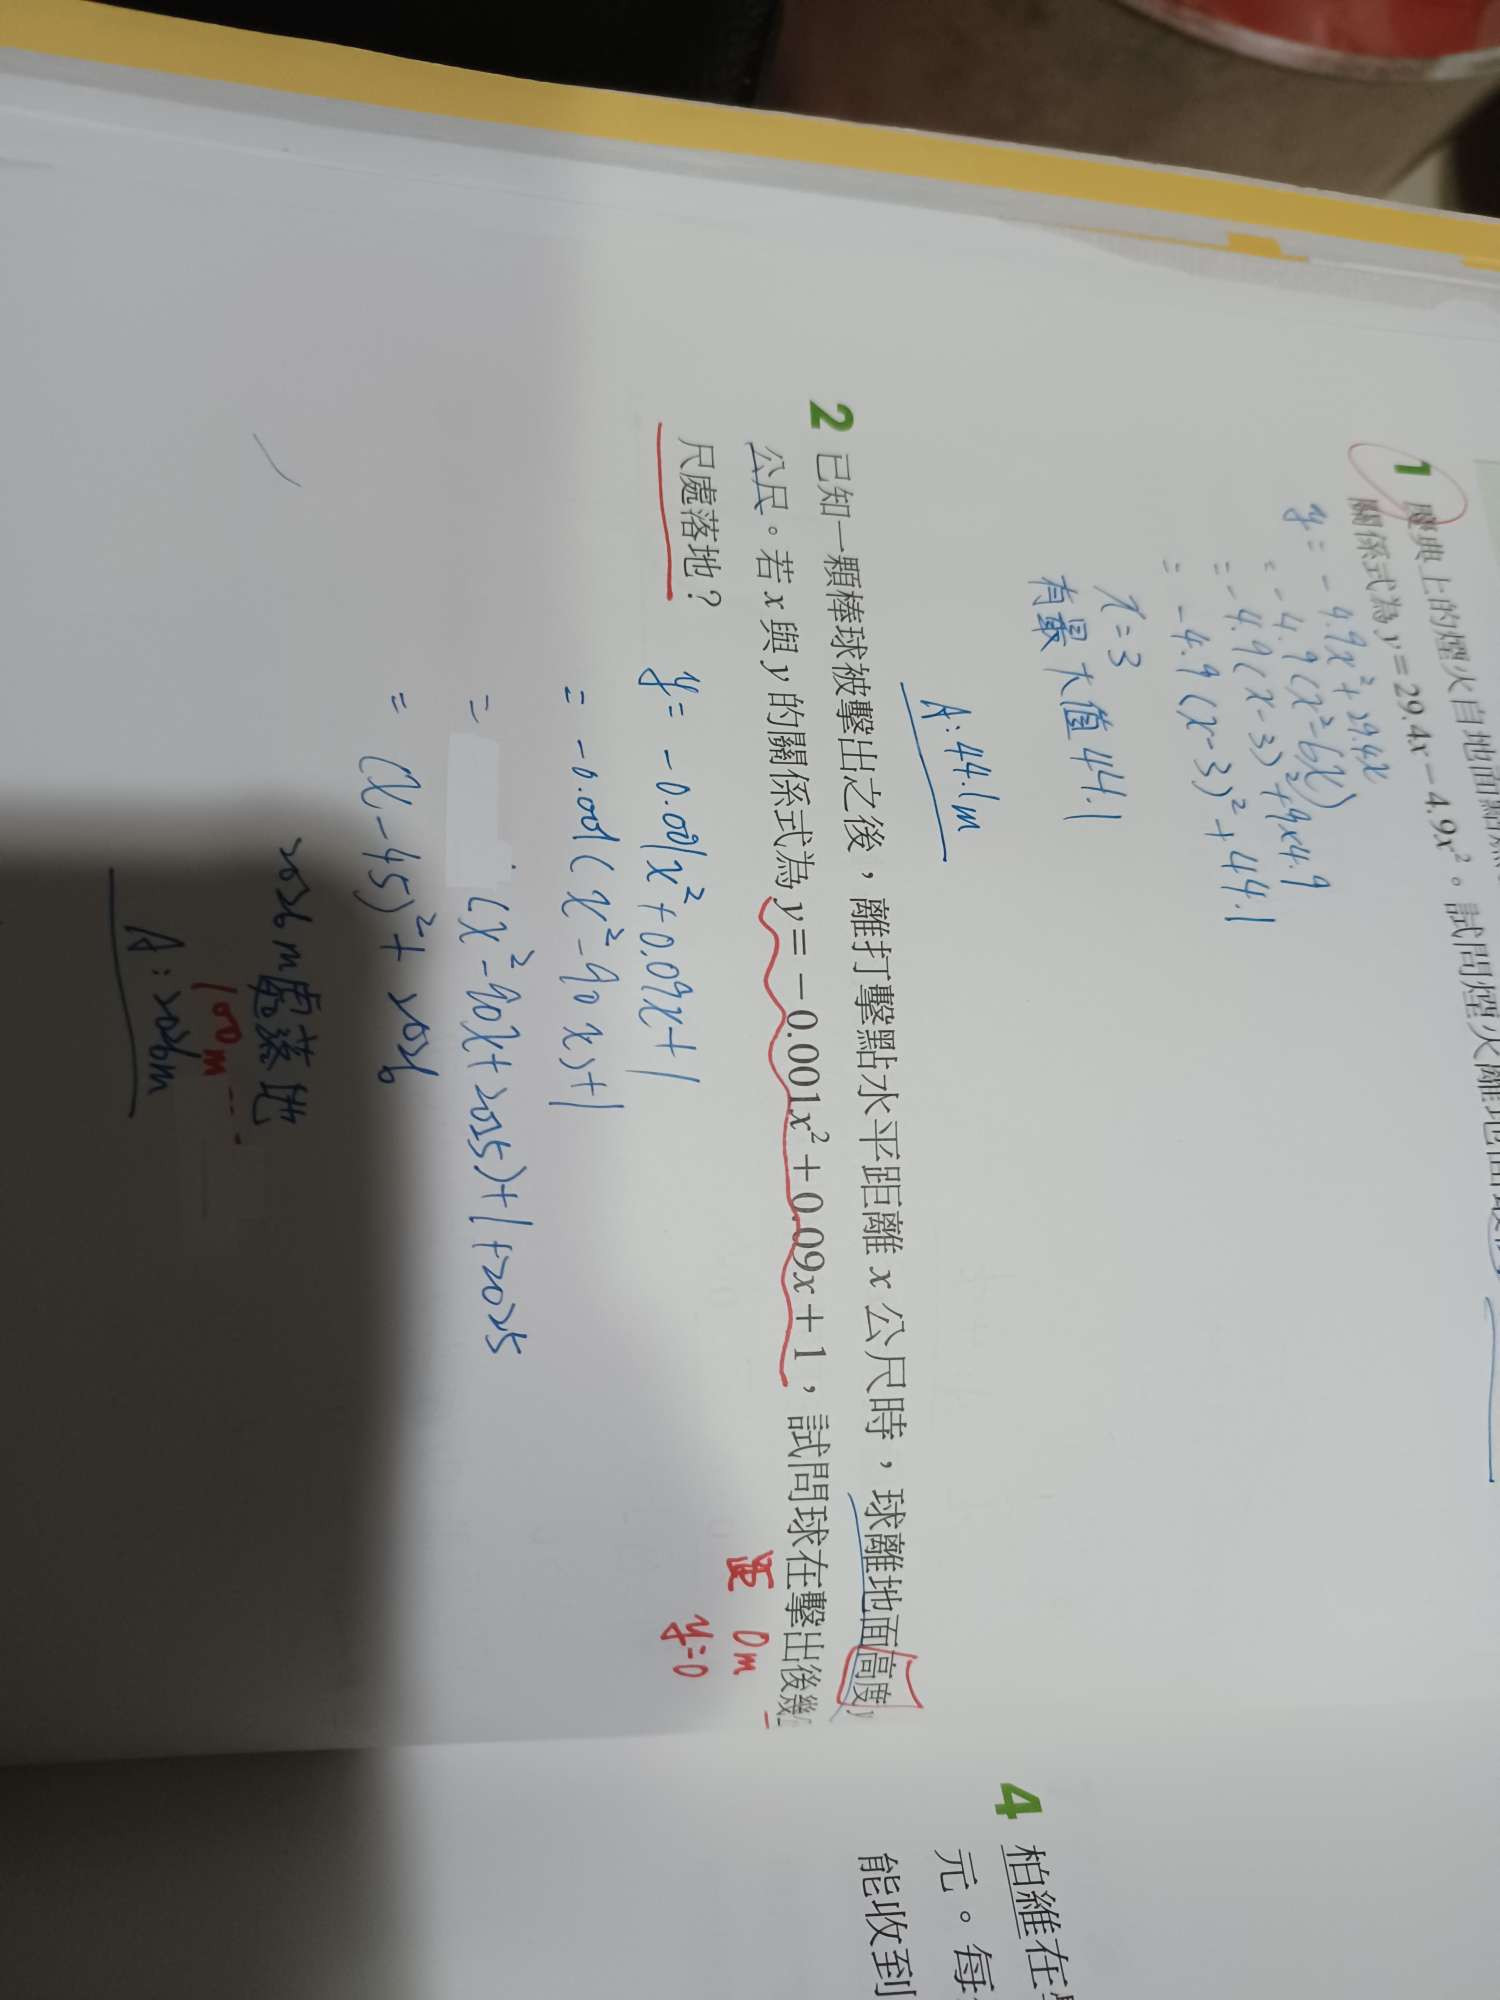 1 慶典上的煙火自地面
關係式為 y=29.4x−4.9x²。試問煙火離地面最
y = -4.9x²+29.4x
= -4.9(x²-6x)
= -4.9(x-3)²+9×4.9
= -4.9(x-3)²+44.1
x=3
有最大值44.1
A:44.1m
2 已知一顆棒球被擊出之後，離打擊點水平距離 x 公尺時，球離地面高度 y
公尺。若 x 與 y 的關係式為 y=−0.001x²+0.09x+1，試問球在擊出後幾
尺處落地？
0m
y=0
y= -0.001x²+0.09x+1
= -0.001(x²-90x)+1
= (x²-90x+2025)+1+2025
= (x-45)²+2026
2026m處落地
100m
A:2026m
4 柏維在
元。每
能收到